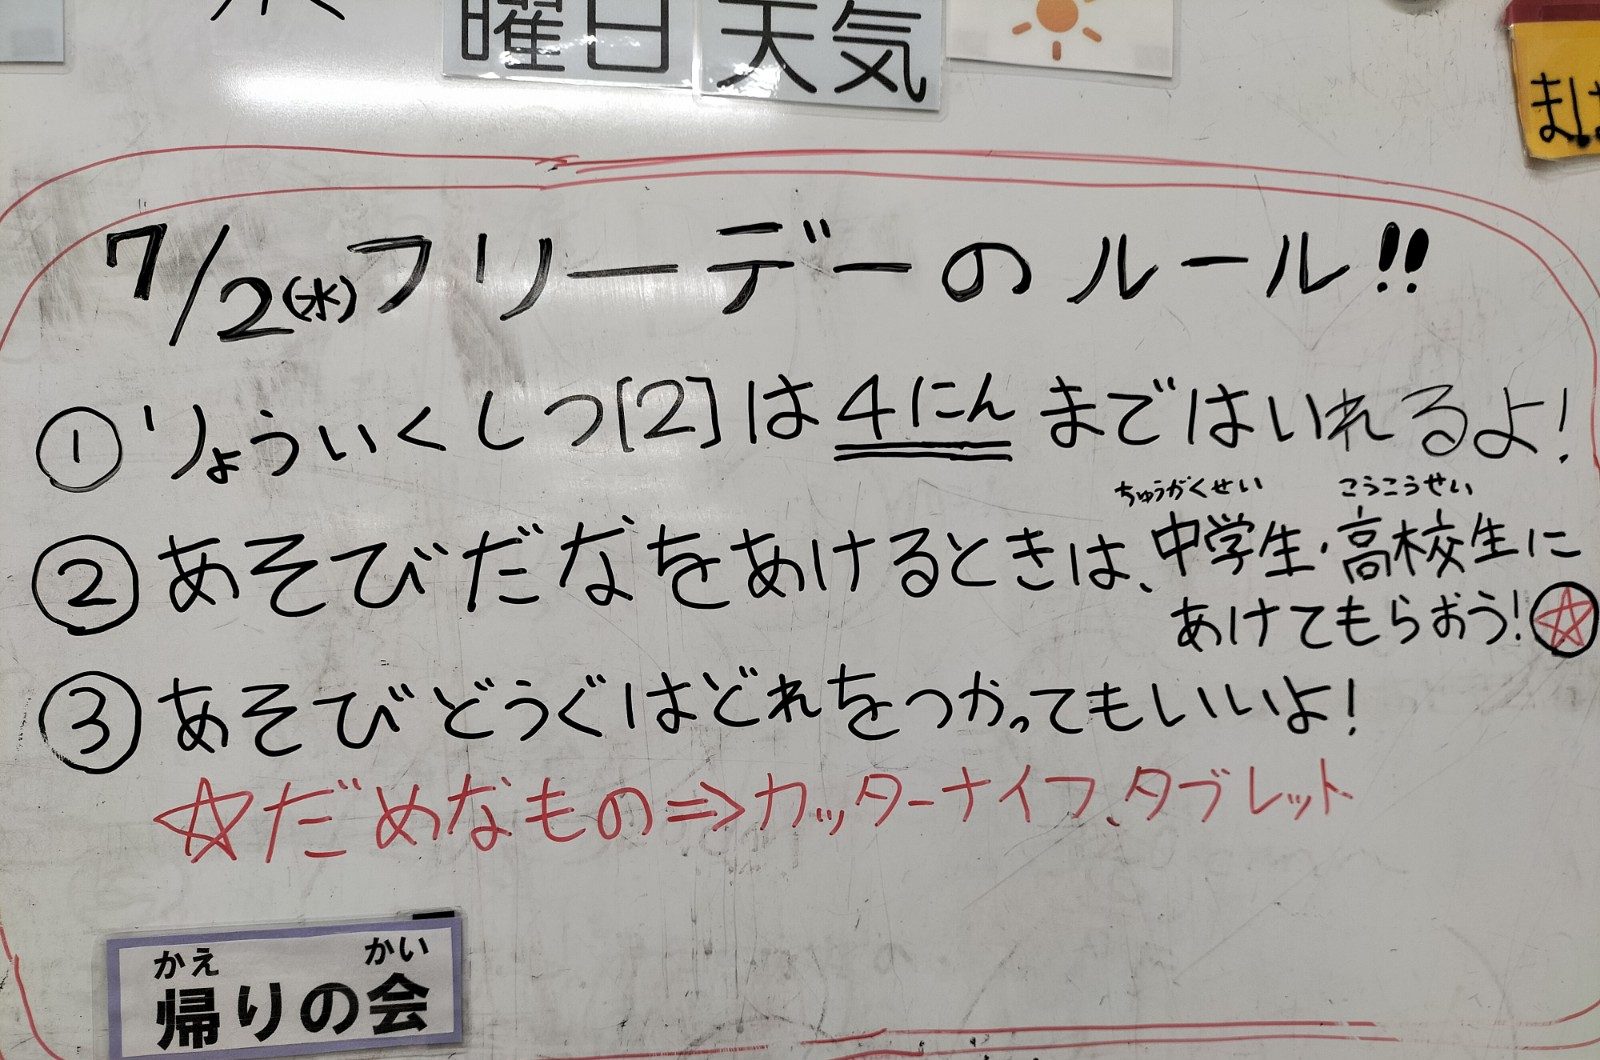 曜日 天気
7/2(水)フリーデーのルール!!
① りょういくしつ[2]は4にんまではいれるよ!
ちゅうがくせい こうこうせい
② あそびだなをあけるときは、中学生・高校生に
あけてもらおう!☆
③ あそびどうぐはどれをつかってもいいよ!
☆だめなもの⇒カッターナイフ、タブレット
かえ かい
帰りの会